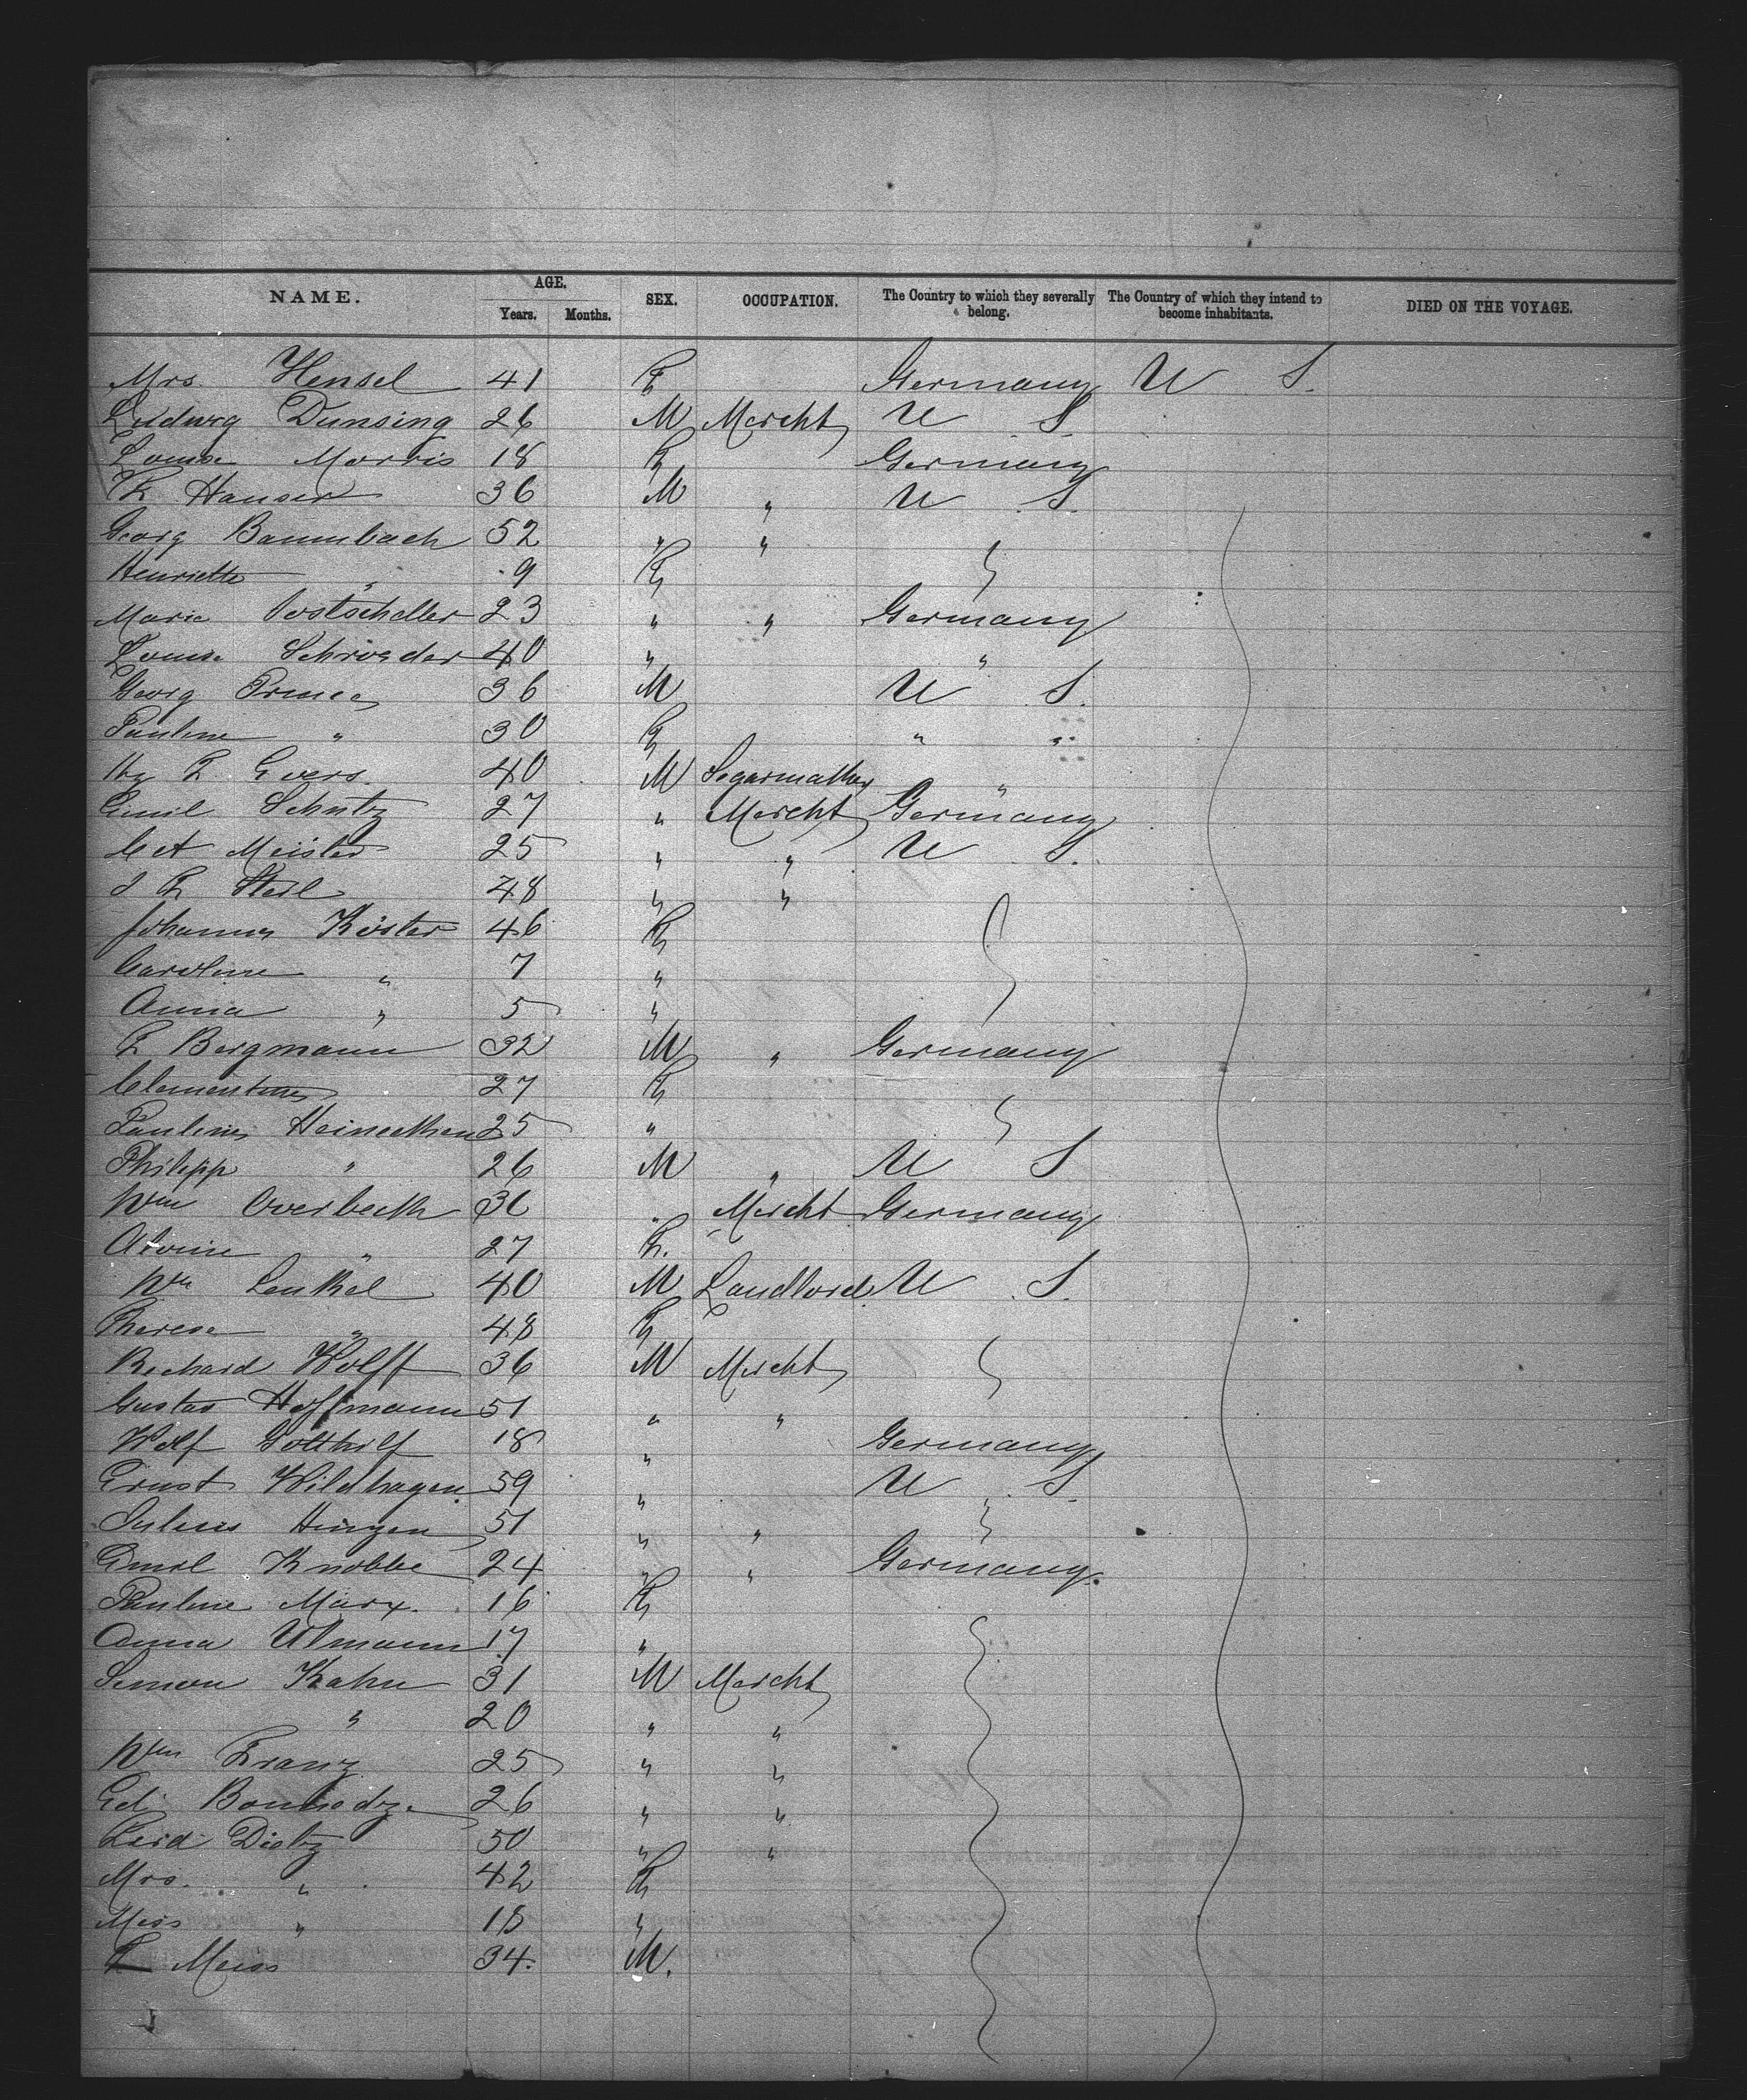 NAME. AGE. SEX. OCCUPATION. The Country to which they severally belong. The Country of which they intend to become inhabitants. DIED ON THE VOYAGE.
Years. Months.
Mrs. Hensel 41 F Germany U S.
Ludwig Dunsing 26 M Mercht U S
Louise Morris 18 F Germany
Hansen 36 M " U S.
Georg Baumbach 52 " "
Henriette " 9 F
Marie 23 " " Germany
Louise Schroeder 40 " "
Georg Prince 36 M U S.
Pauline " 30 F " "
Hy F. Evers 40 M "
Emil Schutz 27 " Mercht Germany
Meister 25 " " U S.
48 " "
Johanna Köster 46 F
Caroline " 7 "
Anna " 5 "
F Bergmann 32 M " Germany
Clementine 27 F
Pauline Heinecken 25 "
Philipp " 26 M " U S
Wm Overbeck " Mercht Germany
" 27 F.
Wm Lenkel 40 M Landlord U S.
Therese " 48 F
Richard Wolff 36 M Mercht
Gustav Hoffmann 51 " "
Wolf Gotthilf 18 " Germany
Ernst Wildhagen 59 " U S.
Julius 51 " "
Emil Knobbe 24 " " Germany.
Pauline Marx. 16 F
Anna Ulmann 17 "
Simon Kahn 31 M Mercht
" 20 " "
Wm Franz 25 " "
Ed. 26 " "
Dietz 50 " "
Mrs. " 42 F
Miss " 18 "
Meiss 34. M.